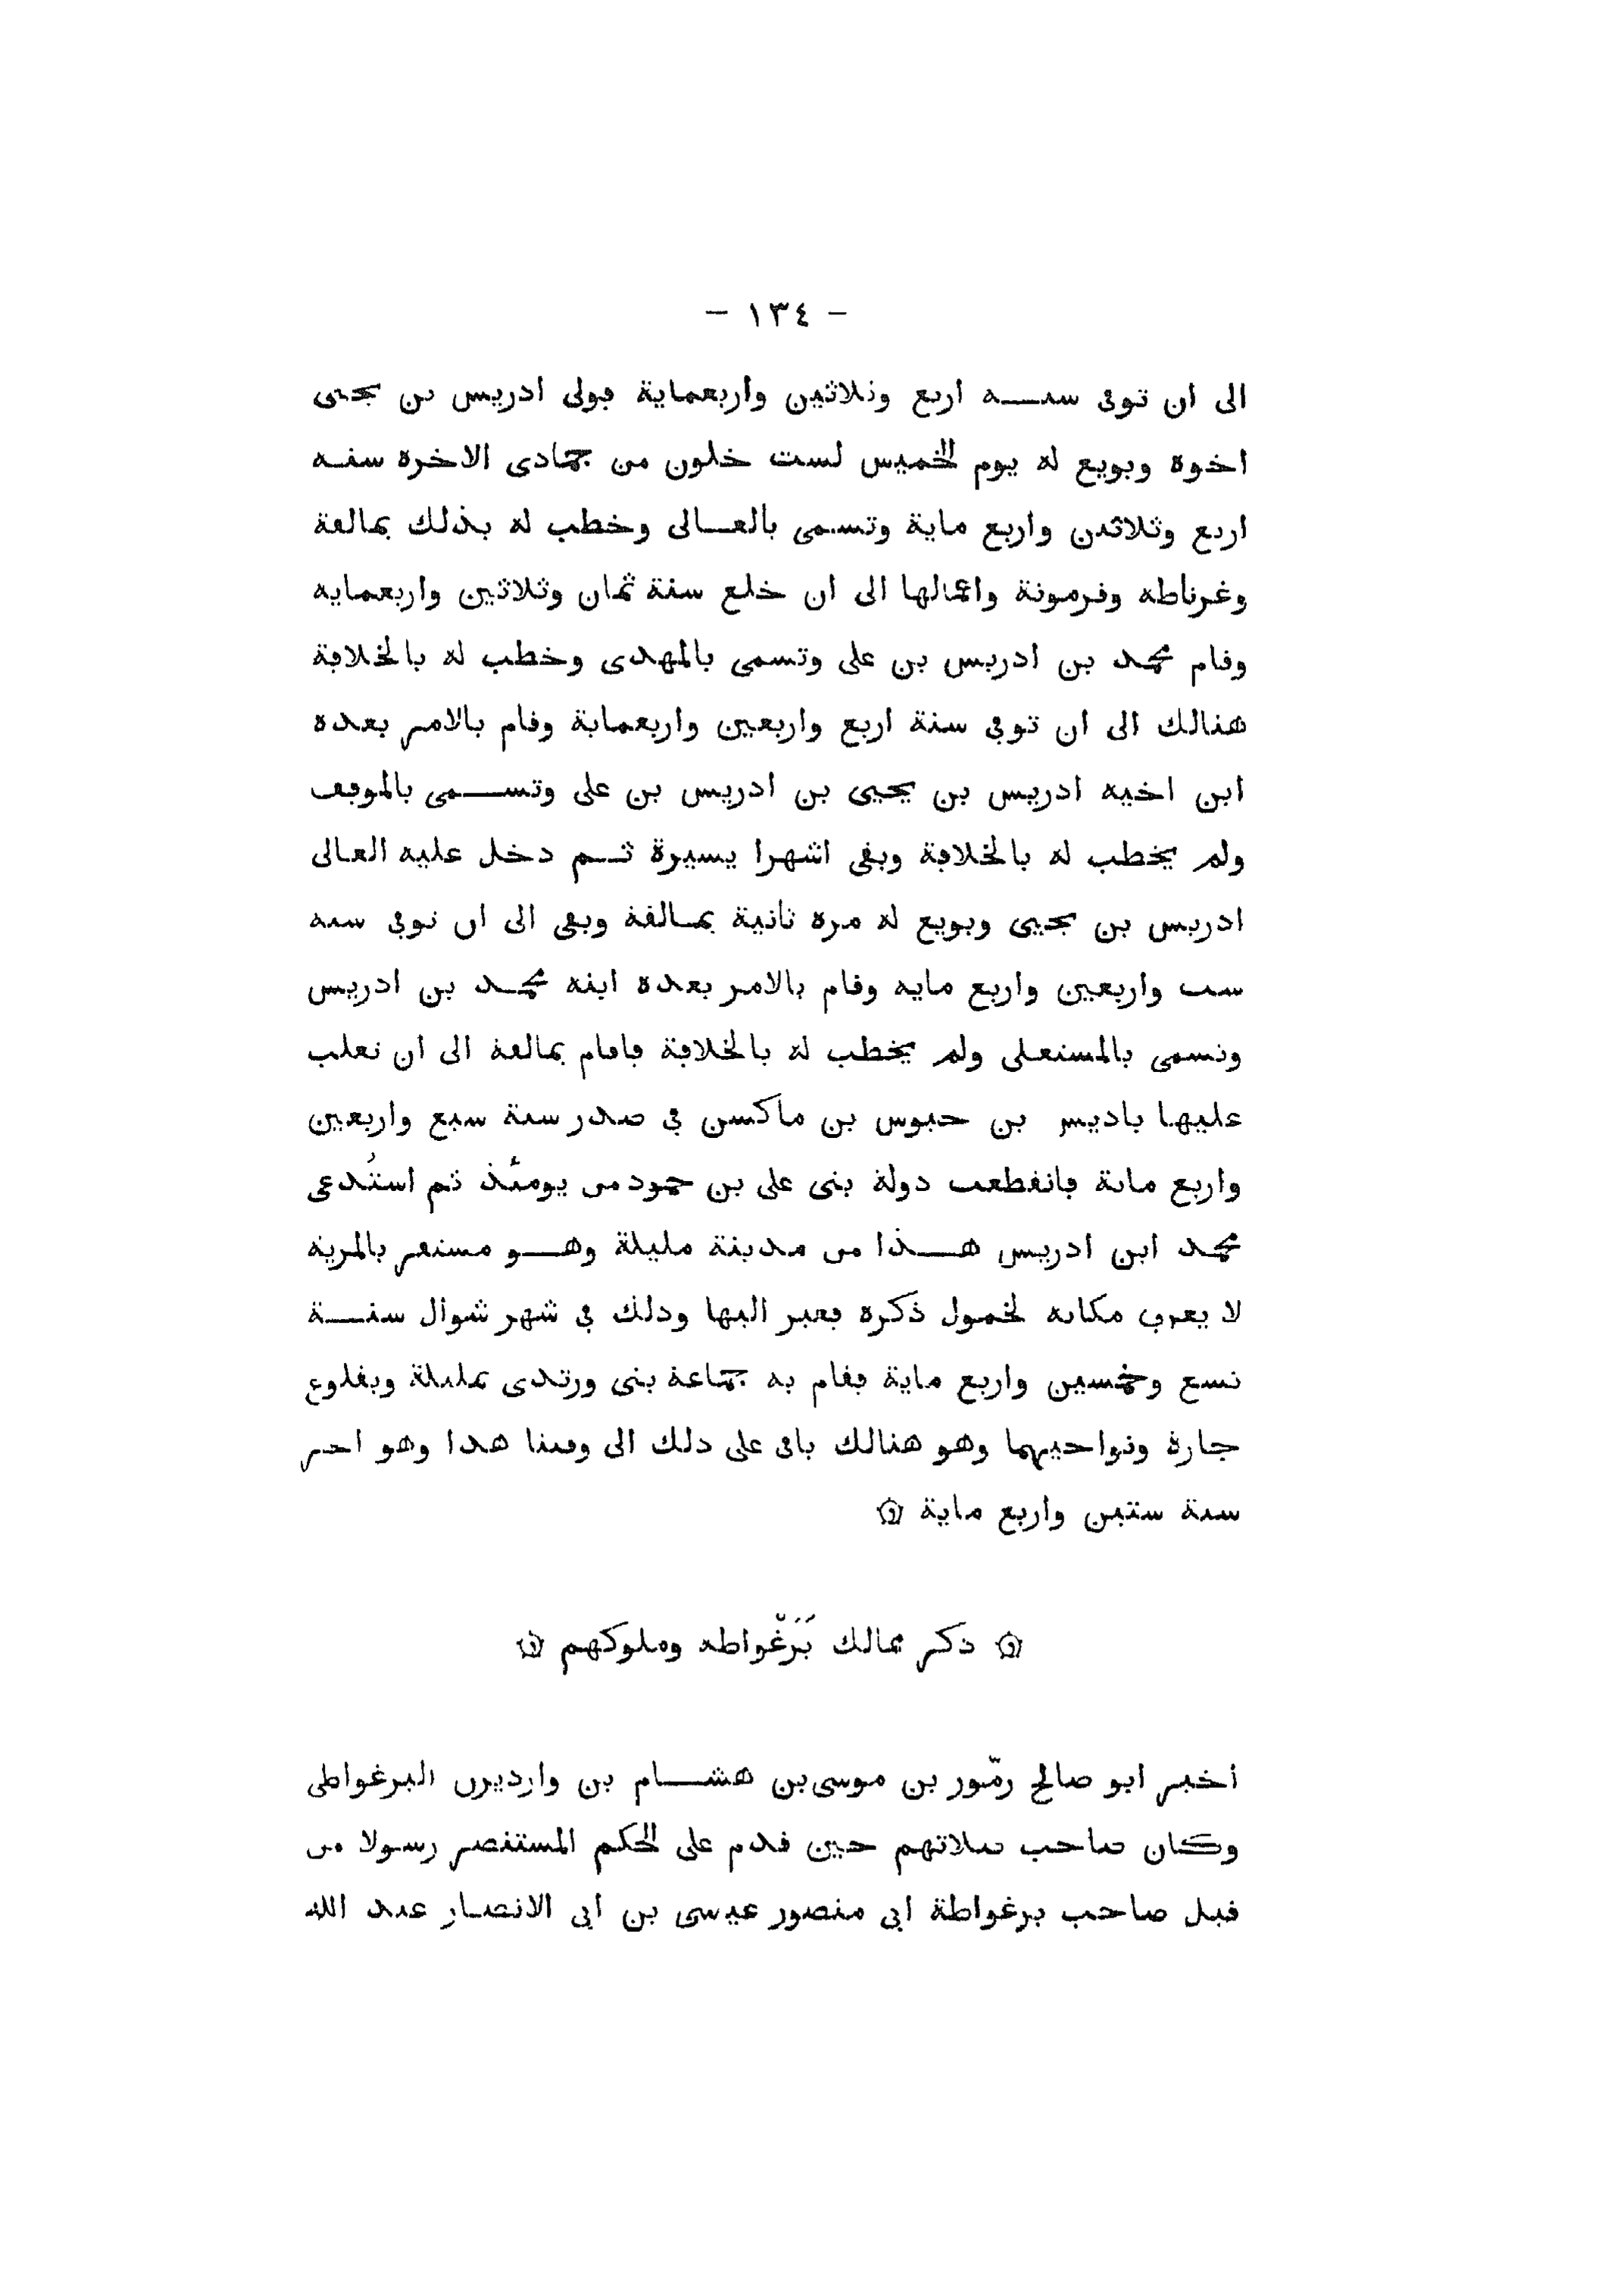 - ١٣٤ -
الى ان توفى سنة اربع وثلاثين واربعماية فولى ادريس بن يحيى
اخوه وبويع له يوم الخميس لست خلون من جمادى الاخرة سنة
اربع وثلاثين واربع ماية وتسمى بالعالى وخطب له بذلك بمالقة
وغرناطه وقرمونة واعمالها الى ان خلع سنة ثمان وثلاثين واربعمايه
وقام محمد بن ادريس بن على وتسمى بالمهدى وخطب له بالخلافة
هنالك الى ان توفى سنة اربع واربعين واربعماية وقام بالامر بعده
ابن اخيه ادريس بن يحيى بن ادريس بن على وتسمى بالموفق
ولم يخطب له بالخلافة وبقى اشهرا يسيرة ثم دخل عليه العالى
ادريس بن يحيى وبويع له مرة ثانية بمالقة وبقى الى ان توفى سنة
ست واربعين واربع مايه وقام بالامر بعده ابنه محمد بن ادريس
وتسمى بالمستعلى ولم يخطب له بالخلافة فاقام بمالقة الى ان تغلب
عليها باديس بن حبوس بن ماكسن فى صدر سنة سبع واربعين
واربع ماية فانقطعت دولة بنى على بن حمود من يومئذ ثم استُدعى
محمد ابن ادريس هذا من مدينة مليلة وهو مستقر بالمرية
لا يعرف مكانه لخمول ذكره فعبر اليها وذلك فى شهر شوال سنة
تسع وخمسين واربع ماية فقام به جماعة بنى ورتدى بمليلة وبقلوع
جارة ونواحيهما وهو هنالك باق على ذلك الى وقتنا هذا وهو اخر
سنة ستين واربع ماية
ذكر ممالك بَرَغْواطه وملوكهم
اخبر ابو صالح زمّور بن موسى بن هشام بن وارديزن البرغواطى
وكان صاحب صلاتهم حين قدم على الحكم المستنصر رسولا من
قبل صاحب برغواطة ابى منصور عيسى بن ابى الانصار عبد الله